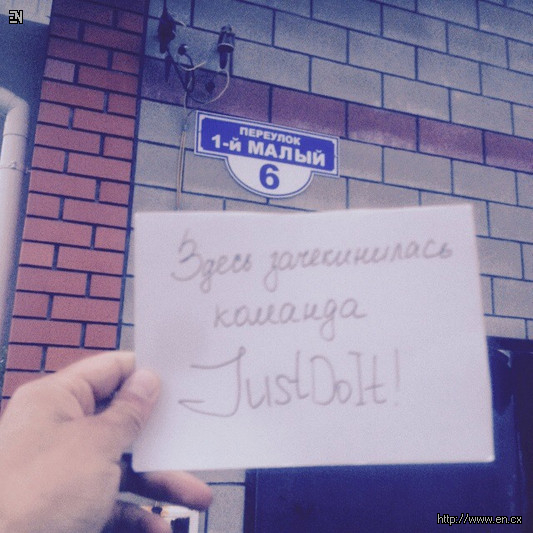 EN
ПЕРЕУЛОК
1-й МАЛЫЙ
6
Здесь зачекинилась
команда
JustDoIt!
http://www.en.cx